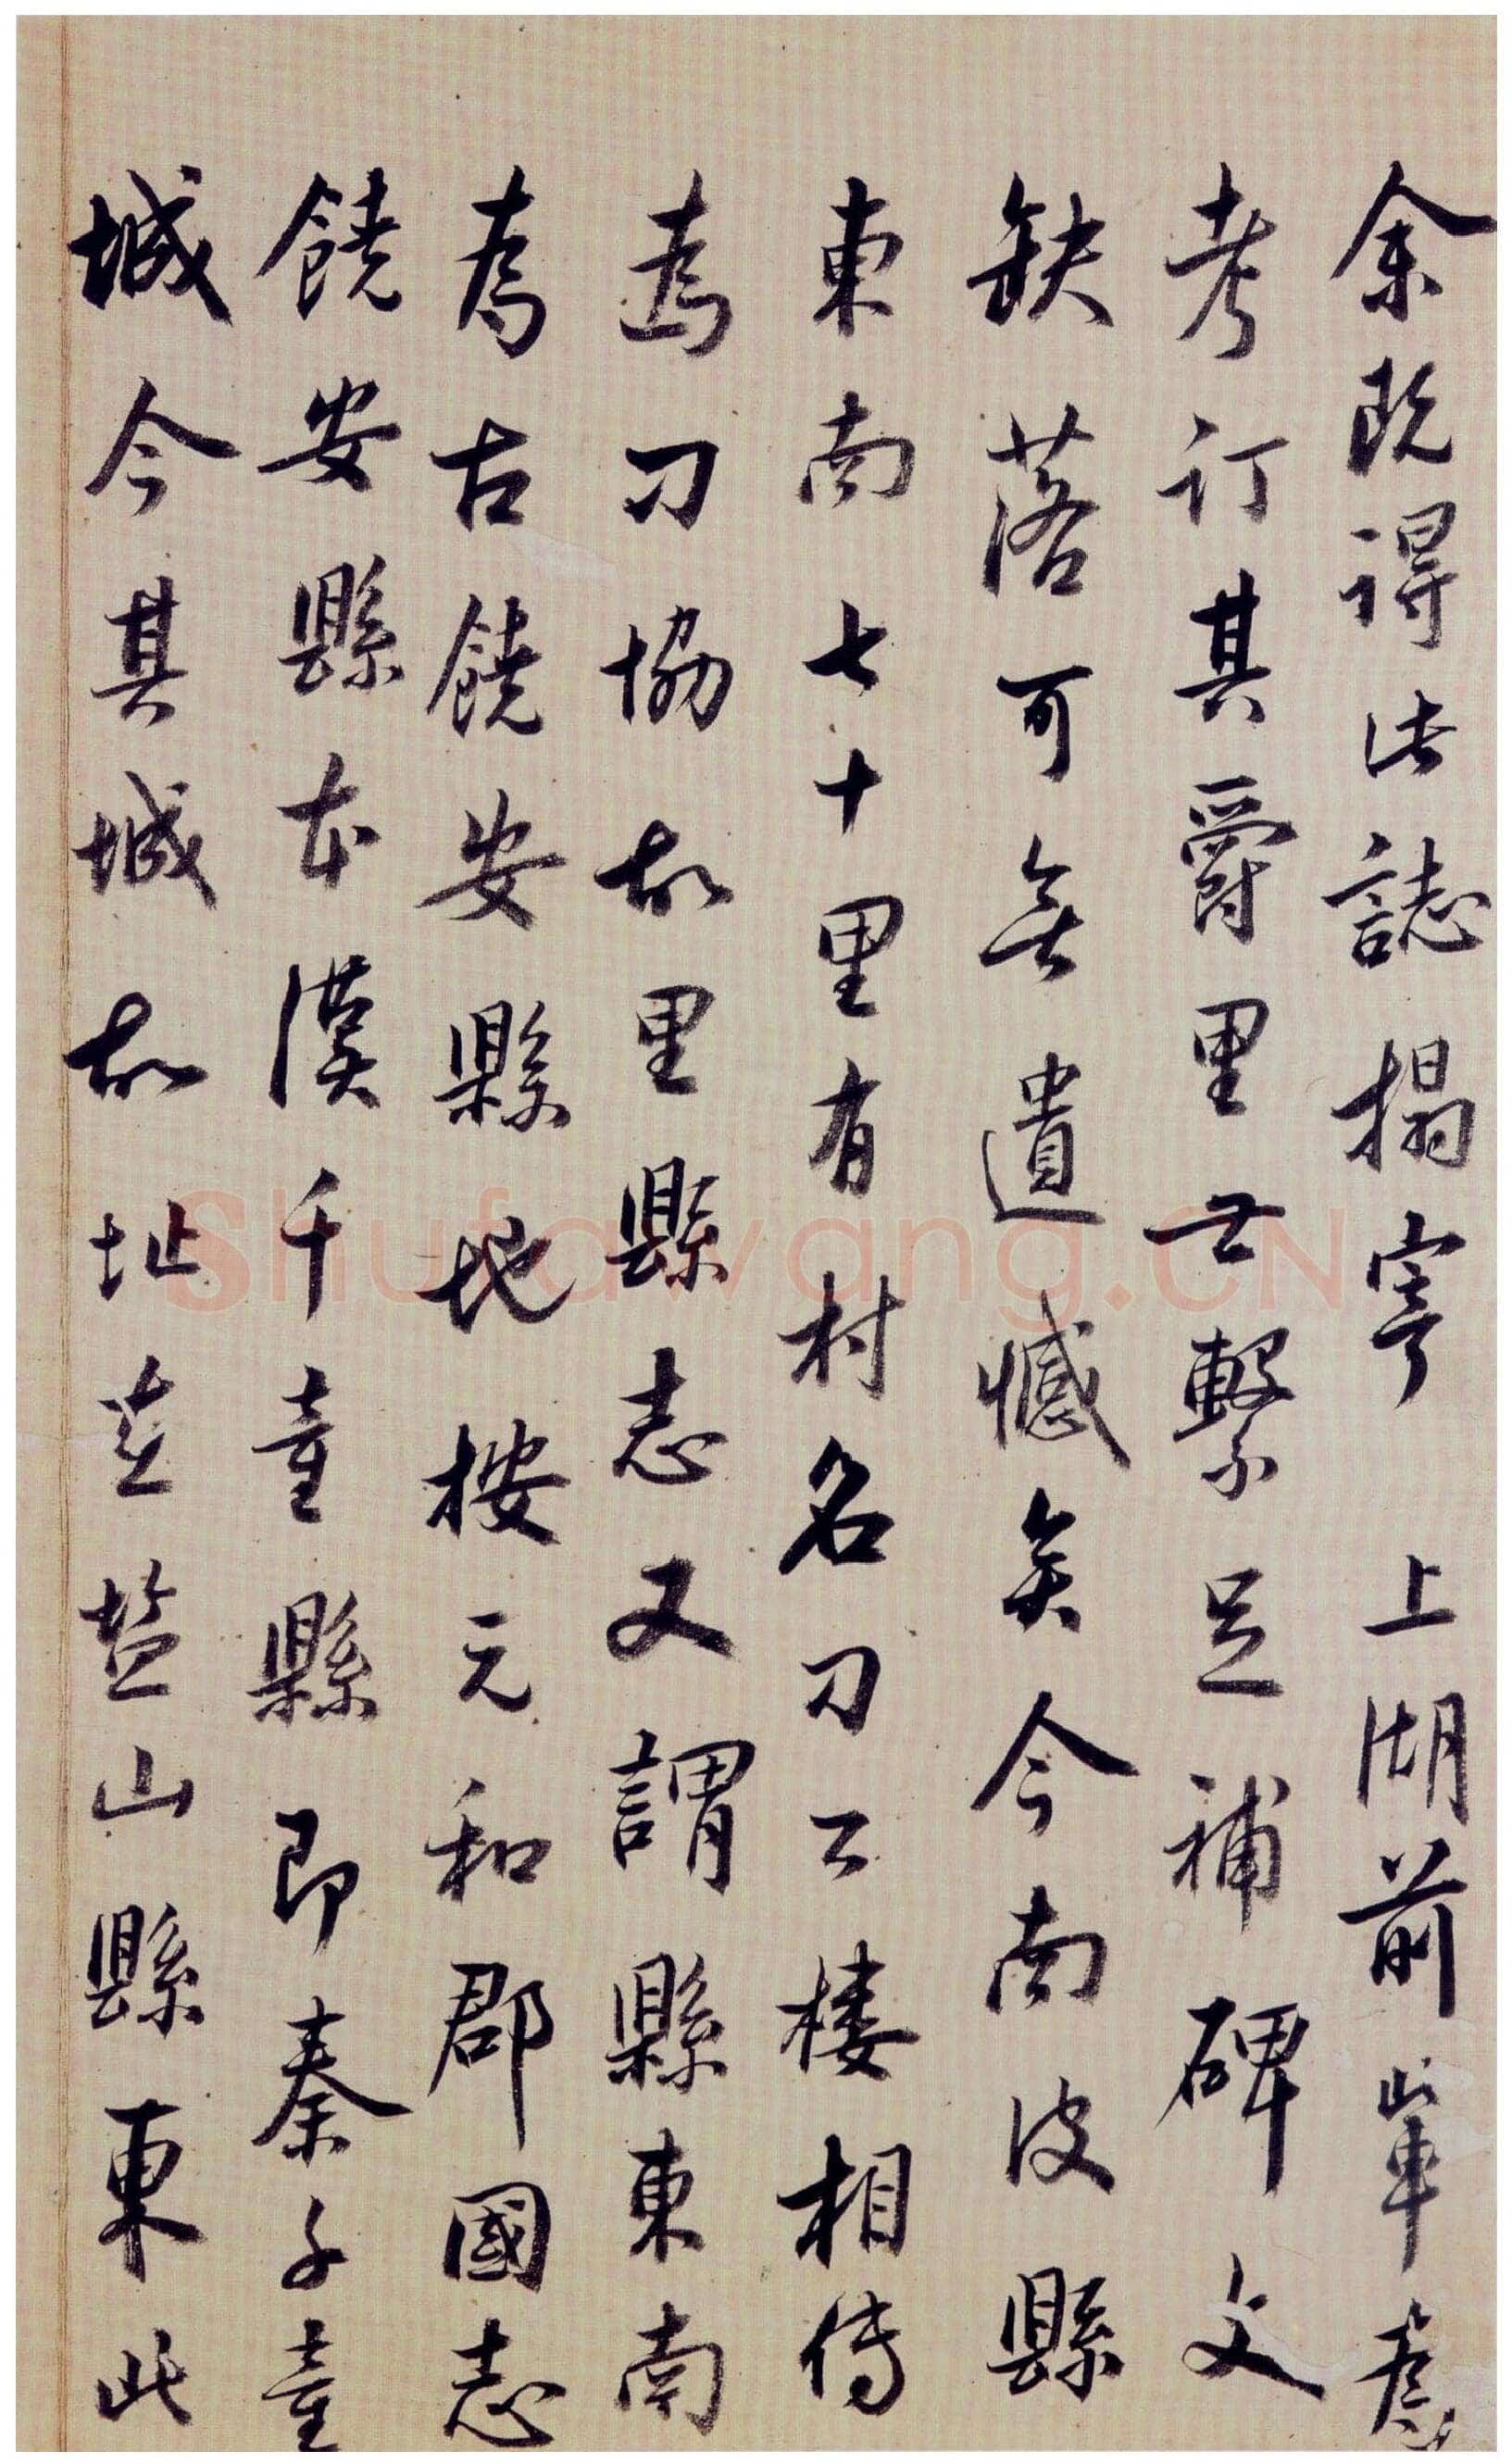 余既得此誌搨寄 上湖前輩為
考訂其爵里世繫足補碑文
缺落可無遺憾矣今南皮縣
東南七十里有村名刁公樓相傳
為刁協故里縣志又謂縣東南
為古饒安縣地按元和郡國志
饒安縣本漢千童縣即秦千童
城今其城故址在盐山縣東此
Shufawang.CN